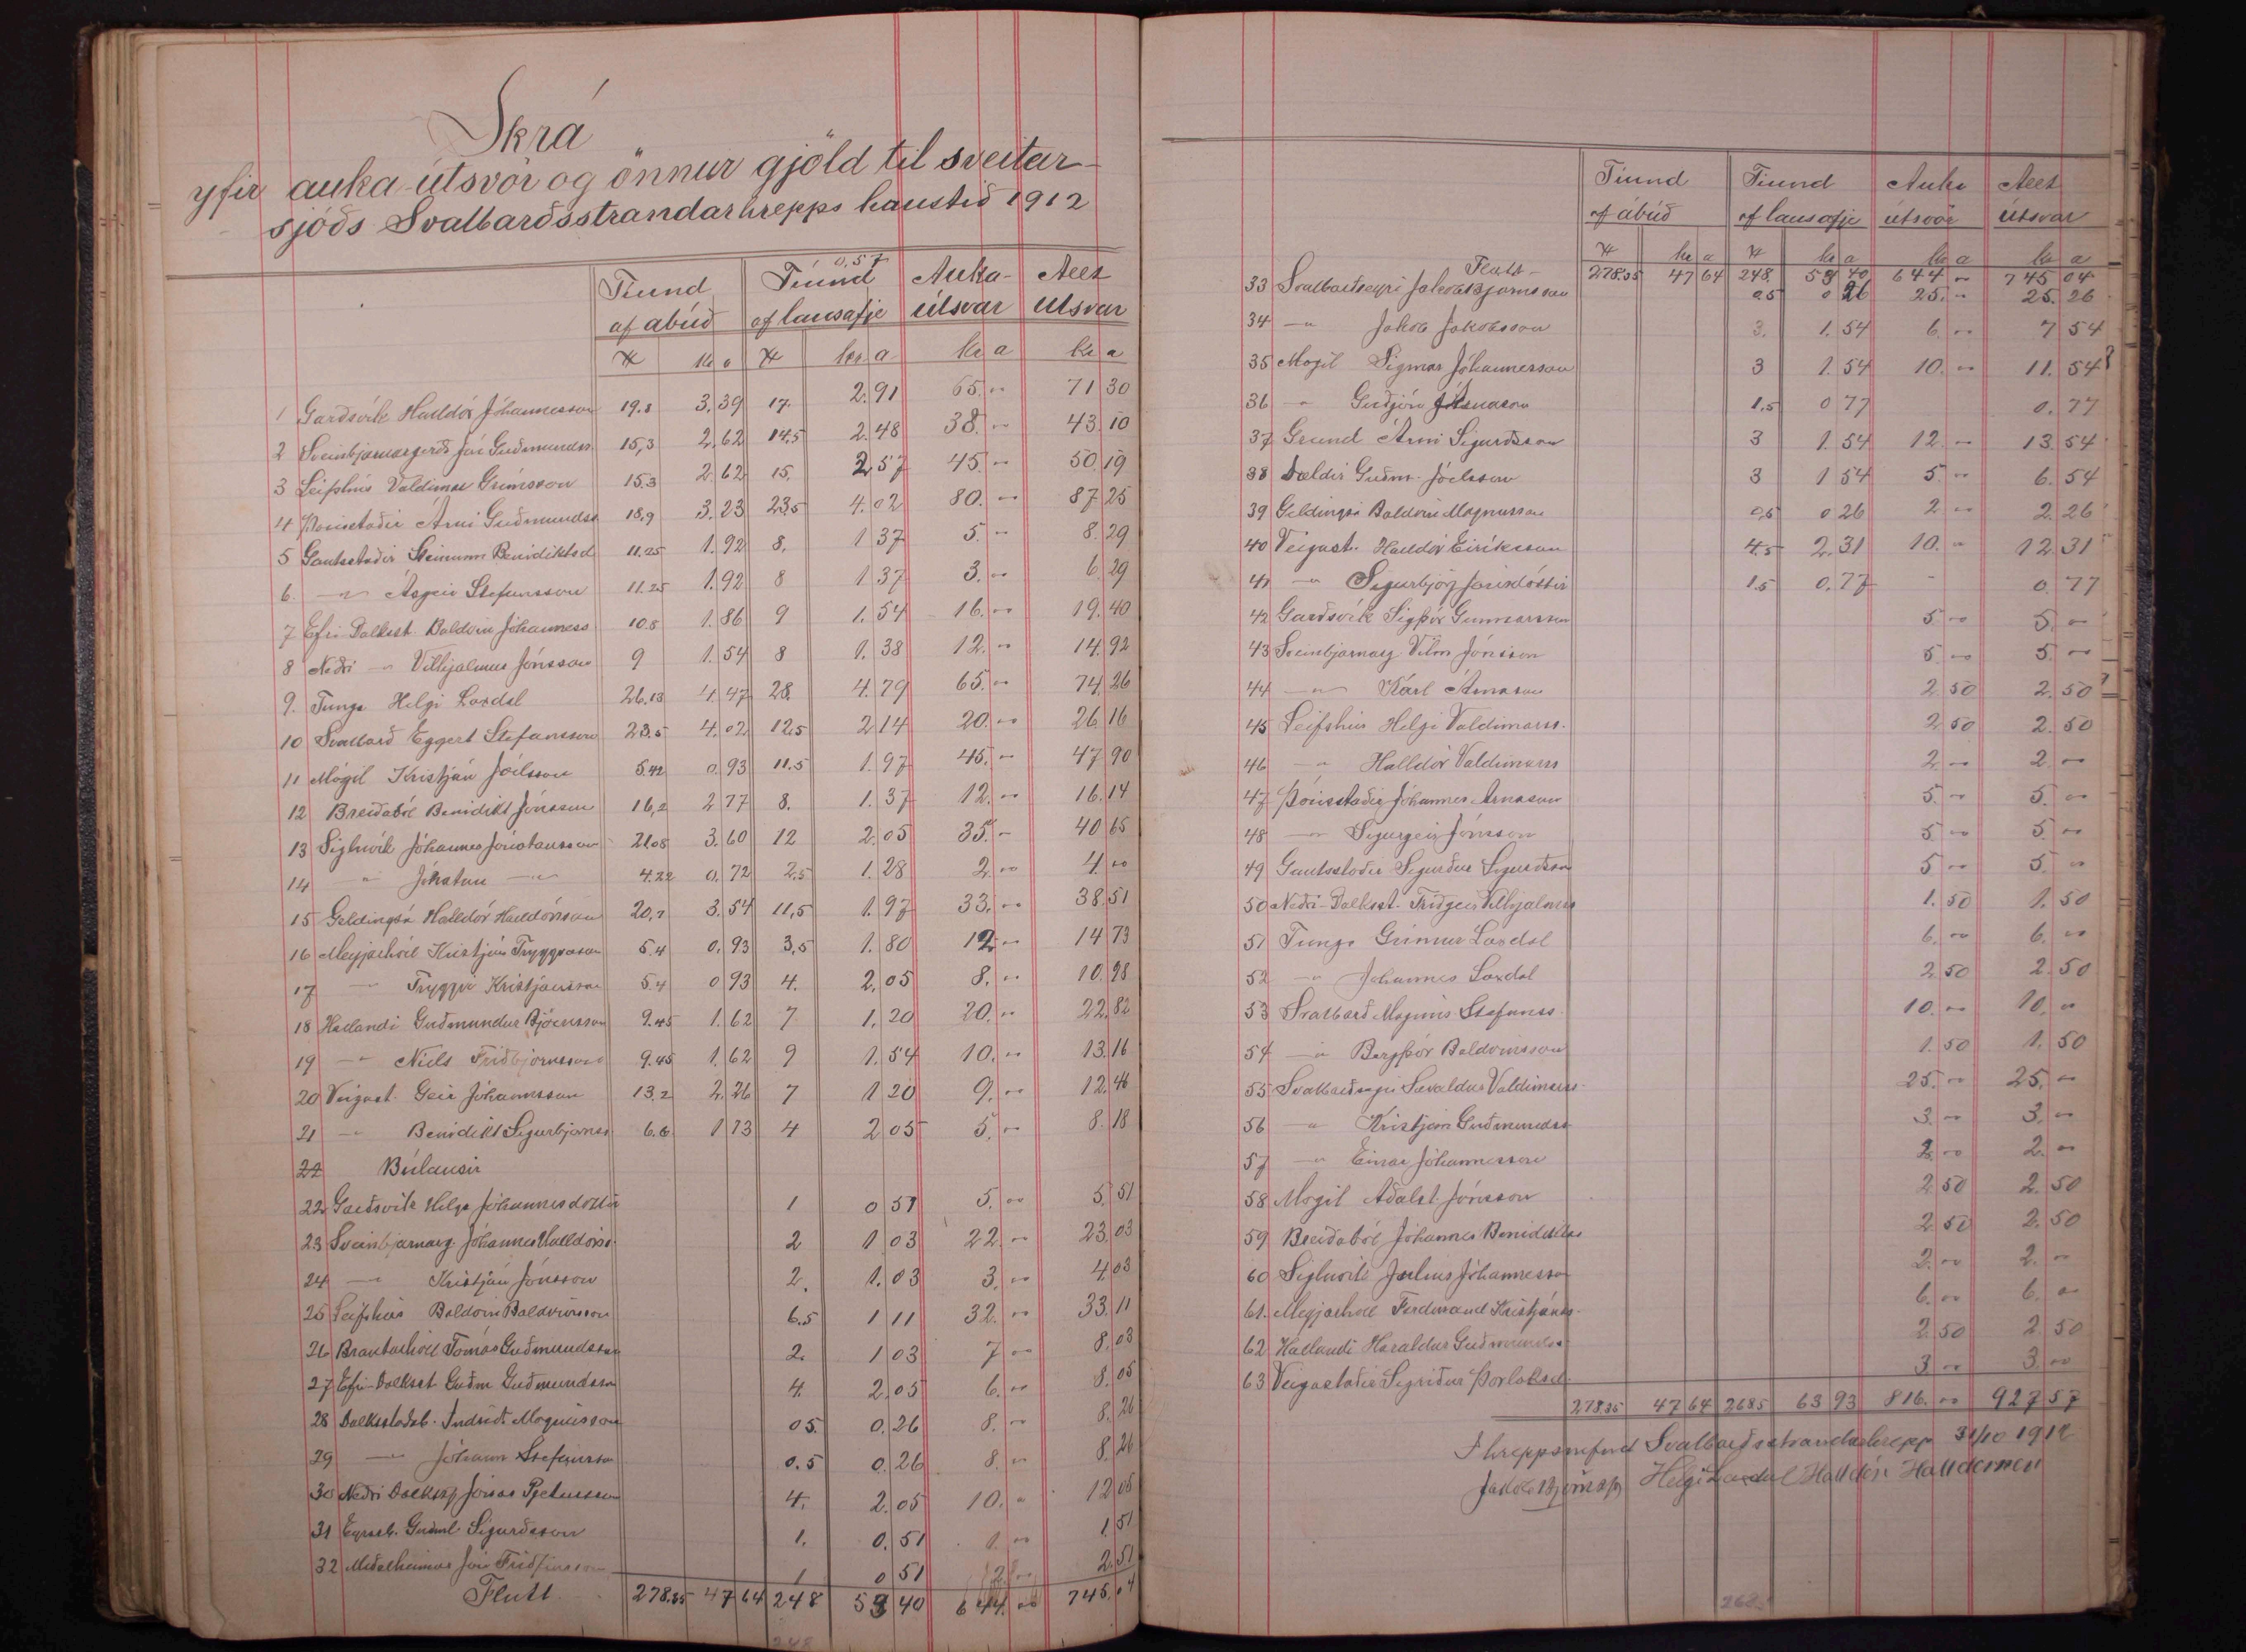 Skrá
yfir auka-útsvör og önnur gjöld til sveitar-
sjóðs Svalbarðsstrandarhrepps haustið 1912
0,57
Tíund Tíund Auka- Allt
af ábúð af lausafje útsvar útsvar
kr a kr a kr a kr a
1 Garðsvík Halldór Jóhannesson 19.8 3.39 17. 2.91 65.00 71 30
2 Sveinbjarnargerði Jón Guðmundss. 15,3 2.62 14.5 2.48 38.00 43.10
3 Leifshús Valdimar Grímsson 15.3 2.62 15. 2.57 45.00 50.19
4 Þórisstaðir Árni Guðmundss 18.9 3.23 23.5 4.02 80.00 87 25
5 Gautsstaðir Steinunn Benidiktsd 11.25 1.92 8. 1 37 5.00 8.29
6. —"— Ásgeir Stefánsson 11.25 1.92 8 1 37 3.00 6.29
7 Efri-Dalkst. Baldvin Jóhanness 10.8 1.86 9 1.54 16.00 19.40
8 Neðri —"— Vilhjálmur Jónsson 9 1.54 8 1.38 12.00 14.92
9. Tunga Helgi Laxdal 26.13 4.47 28. 4.79 65.00 74.26
10 Svalbarð Eggert Stefánsson 23.5 4.02 12.5 2 14 20.00 26.16
11 Mógil Kristján Jóelsson 5.42 0.93 11.5 1.97 45.00 47.90
12 Breiðaból Benidikt Jónsson 16,2 2 77 8. 1.37 12.00 16.14
13 Sigluvík Jóhannes Jónatansson 21.05 3.60 12 2.05 35.— 40 65
14 —"— Jónatan —"— 4.22 0.72 2.5 1.28 2.00 4.00
15 Geldingsá Halldór Halldórsson 20,7 3.54 11,5 1.97 33.00 38.51
16 Meyjarhóll Kristján Tryggvason 5.4 0.93 3,5 1.80 12.00 14 73
17 —"— Tryggvi Kristjánsson 5.4 0 93 4. 2.05 8.00 10.98
18 Hallandi Guðmundur Björnsson 9.45 1.62 7 1.20 20.00 22.82
19 —"— Níels Friðbjörnsson 9.45 1.62 9 1.54 10.00 13.16
20 Veigast. Geir Jóhannsson 13.2 2.26 7 1 20 9.00 12.46
21 —"— Benidikt Sigurbjörnss 6.6 1 13 4 2 05 5.00 8.18
22 Búlausir
22 Garðsvík Helga Jóhannesdóttir 1 0 51 5.00 5.51
23 Sveinbjarnarg. Jóhannes Halldórss. 2 1 03 22.00 23.03
24 —"— Kristján Jónsson 2. 1.03 3.00 4.03
25 Leifshús Baldvin Baldvinsson 6.5 1 11 32.00 33.11
26 Brautarhóll Tómas Guðmundsson 2. 1 03 7 00 8.03
27 Efri-Dalksst Guðm Guðmundsson 4. 2.05 6.00 8.05
28 Dalksstaðab. Indriði Magnússon 0 5. 0.26 8.00 8.26
29 —"— Jóhann Stefánsson 0.5 0.26 8.00 8.26
30 Neðri Dalkssts Jónas Pjetursson 4. 2.05 10.00 12 05
31 Guðml Sigurðsson 1. 0.51 1.00 1.51
32 Meðalheimur Jón Friðfinnsson 1 0 51 2.00 2.51
Flutt 278.35 47 64 248 59 40 644.00 745.04
248
Tíund Tíund Auka Allt
af ábúð af lausafje útsvör útsvar
kr a kr a kr a kr a
Flutt — 278.35 47 64 248. 59 40 644 00 745 04
33 Svalbarðseyri Jakob Björnsson 0.5 0 26 25.00 25.26
34 —"— Jakob Jakobsson 3. 1.54 6.00 7 54
35 Mógil Sigmar Jóhannesson 3 1.54 10.00 11.54
36 —"— Guðjón 1.5 0 77 0.77
37 Grund Árni Sigurðsson 3 1.54 12.00 13.54
38 Dældir Guðm. Jóelsson 3 1 54 5.00 6.54
39 Geldingsá Baldvin Magnússon 0,5 0 26 2 00 2.26
40 Veigast. Halldór Eiríksson 4.5 2.31 10.00 12.31
41 —"— Sigurbjörg Jónsdóttir 1.5 0.77 - 0.77
42 Garðsvík Sigþór Gunnarsson 5 00 5.00
43 Sveinbjarnarg Vilm Jónsson 5.00 5.00
44 —"— Karl Árnason 2.50 2.50
45 Leifshús Helgi Valdimarss. 2 50 2.50
46 —"— Halldór Valdimarss 2 00 2.00
47 Þórisstaðir Jóhannes Árnason 5.00 5.00
48 —"— Sigurgeir Jónsson 5.00 5.00
49 Gautsstaðir Sigurður Sigurðsson 5 00 5.00
50 Neðri-Dalksst. Friðgeir Vilhjálmss 1.50 1.50
51 Tunga Grímur Laxdal 6.00 6.00
52 —"— Jóhannes Laxdal 2.50 2.50
53 Svalbarð Magnús Stefánss. 10.00 10.00
54 —"— Bergþór Baldvinsson 1.50 1.50
55 Svalbarðseyri Sævaldur Valdimarss. 25.00 25.00
56 —"— Kristján Guðmundss 3.00 3.00
57 —"— Einar Jóhannesson 2.00 2.00
58 Mógil Aðalst. Jónsson 2.50 2.50
59 Breiðaból Jóhannes Benidiktss 2 50 2.50
60 Sigluvík Júlíus Jóhannesson 2.00 2.00
61. Meyjarhóll Ferdinand Kristjánss. 6.00 6.00
62 Hallandi Haraldur Guðmundss. 2.50 2 50
63 Veigastaðir Sigríður Þorláksd. 3 00 3.00
278.35 47 64 268.5 63 93 816.00 927 57
Í hreppsnefnd Svalbarðsstrandarhrepps 31/10 1912
Jakob Björnsson Helgi Laxdal Halldór Halldórsson
268.5